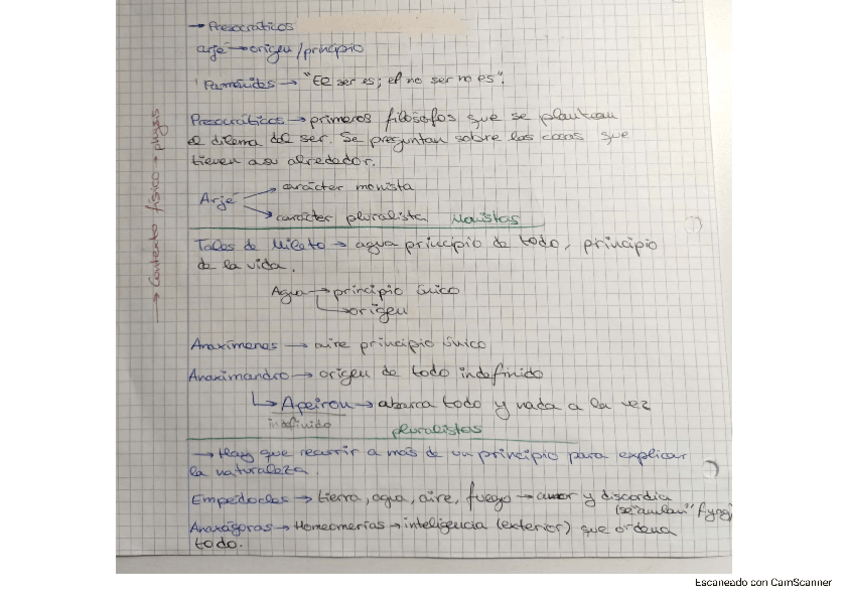 → Presocráticos
arjé → origen/principio
Parménides → "El ser es; el no ser no es".
Presocráticos → primeros filósofos que se plantean
el dilema del ser. Se preguntan sobre las cosas que
tienen a su alrededor.
Arjé → carácter monista
→ carácter pluralista Monistas
Tales de Mileto → agua principio de todo, principio
de la vida.
Agua → principio único
→ origen
Anaxímenes → aire principio único
Anaximandro → origen de todo indefinido
↳ Apeiron → abarca todo y nada a la vez
indefinido pluralistas
→ Hay que recurrir a más de un principio para explicar
la naturaleza.
Empédocles → tierra, agua, aire, fuego → amor y discordia
(se anulan)
Anaxágoras → Homeomerías → inteligencia (exterior) que ordena
todo.
→ Contexto físico → physis
Escaneado con CamScanner